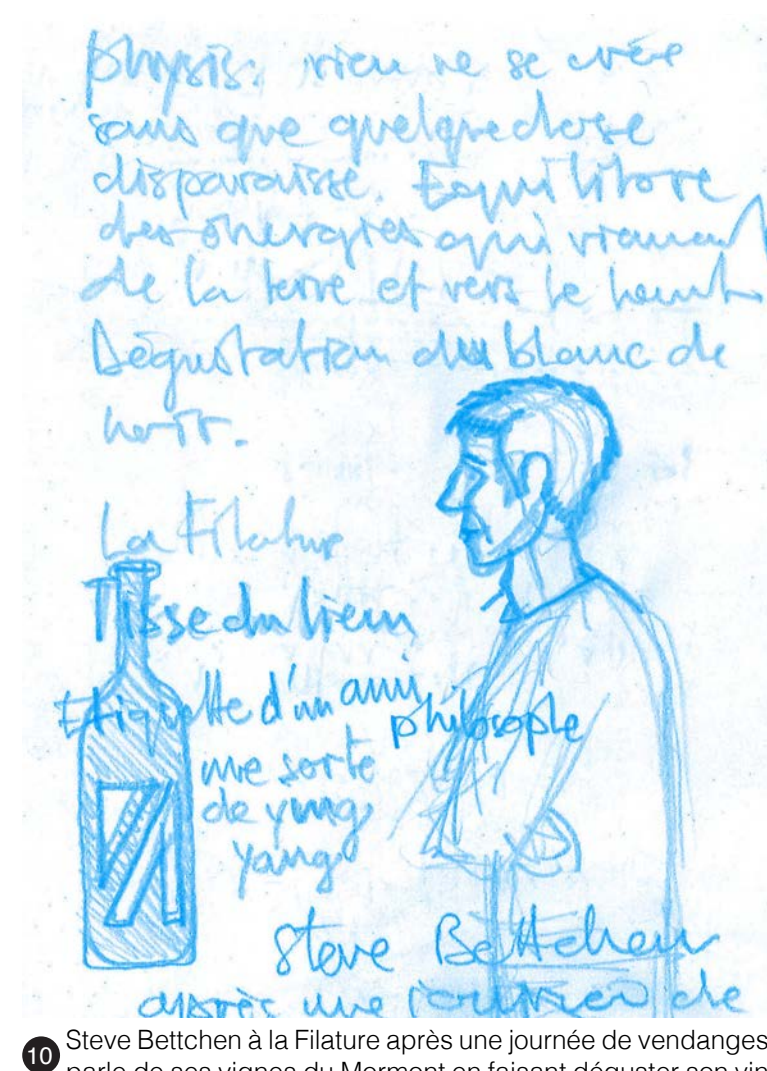 physis. rien ne se crée
sans que quelquechose
disparaisse. Equilibre
des énergies qui viennent
de la terre et vers le haut
Dégustation du blanc de
noir.
La Filature
Tisse du lien
Etiquette d'un ami philosophe
une sorte
de ying
yang
Steve Bettchen
après une journée de
10 Steve Bettchen à la Filature après une journée de vendanges
parle de ses vignes du Mormont en faisant déguster son vin